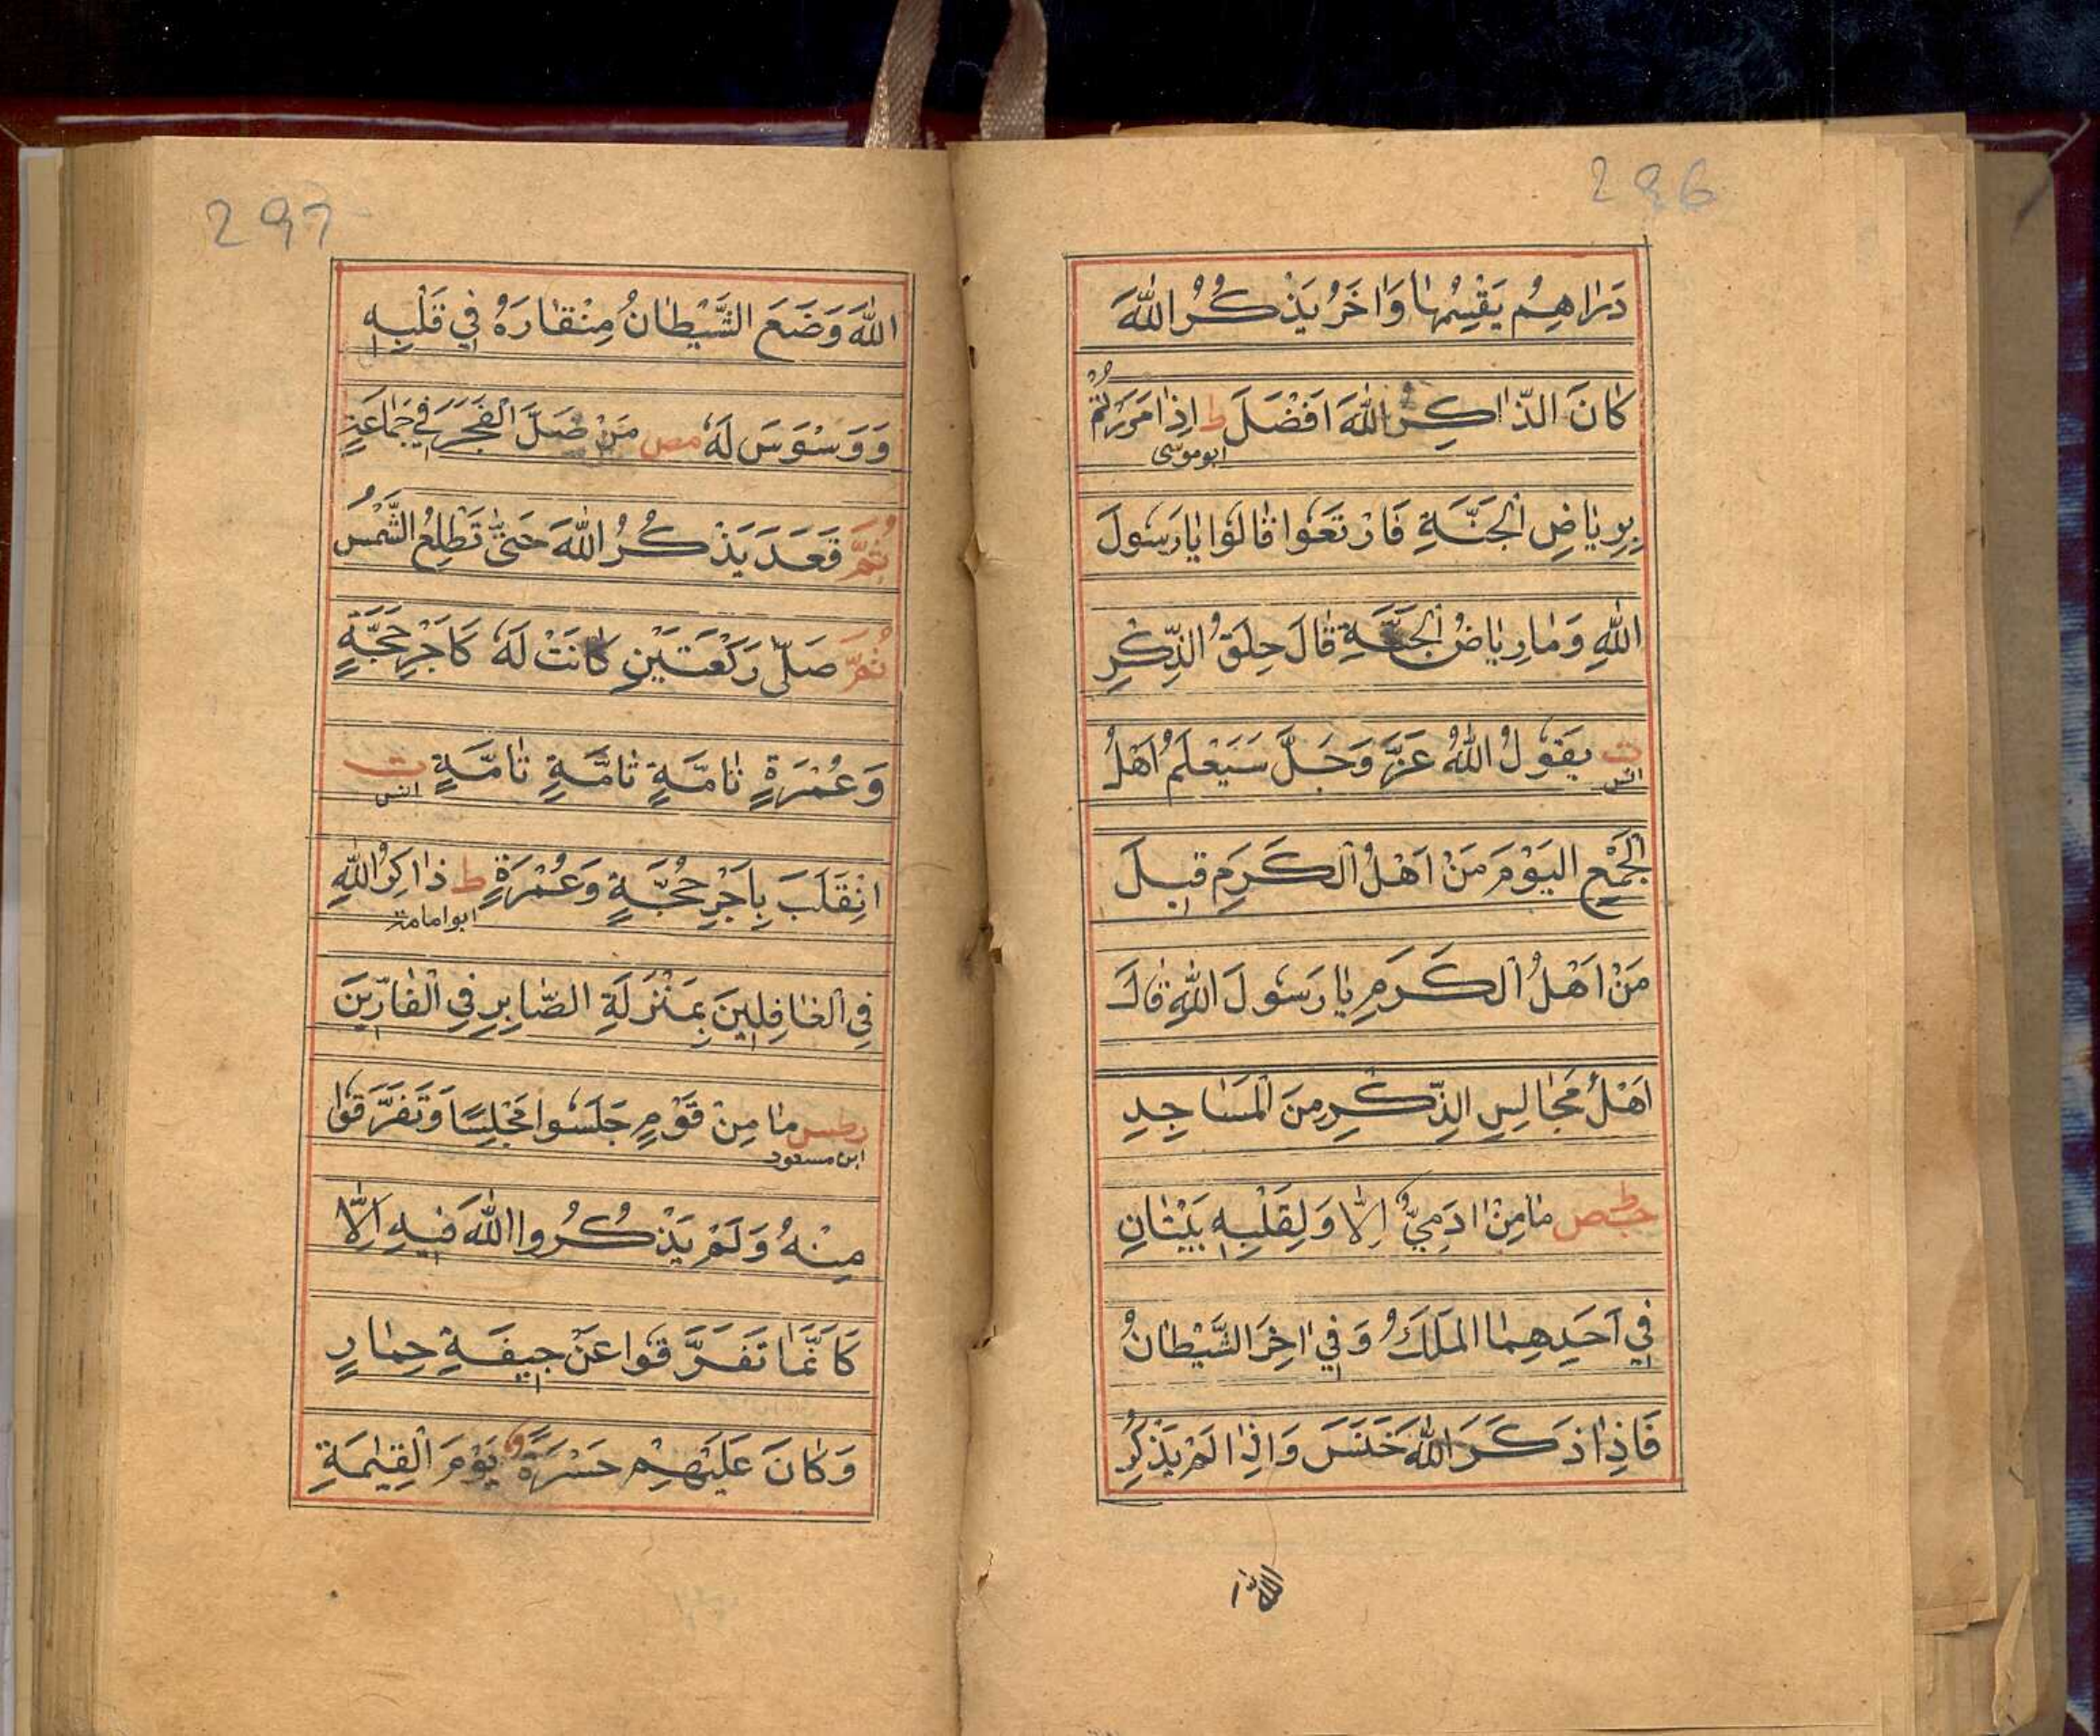 296
دَرَاهِمُ يَقْسِمُهَا وَاخَرُ يَذْكُرُ اللّٰهَ
كَانَ الذَّاكِرُ اللّٰهَ اَفْضَلَ ط اِذَا مَرَرْتُمْ
ابوموسى
بِرِيَاضِ الْجَنَّةِ فَارْتَعُوا قَالُوا يَارَسُولَ
اللّٰهِ وَمَا رِيَاضُ الْجَنَّةِ قَالَ حِلَقُ الذِّكْرِ
ت يَقُولُ اللّٰهُ عَزَّ وَجَلَّ سَيَعْلَمُ اَهْلُ
انس
الْجَمْعِ الْيَوْمَ مَنْ اَهْلُ الْكَرَمِ قِيلَ
مَنْ اَهْلُ الْكَرَمِ يَا رَسُولَ اللّٰهِ قَالَ
اَهْلُ مَجَالِسِ الذِّكْرِ مِنَ الْمَسَاجِدِ
مَا مِنْ ادَمِيٍّ اِلَّا وَلِقَلْبِهِ بَيْتَانِ
فِي اَحَدِهِمَا الْمَلَكُ وَفِي اخِرَ الشَّيْطَانُ
فَاِذَا ذَكَرَ اللّٰهَ خَنَسَ وَاِذَا لَمْ يَذْكُرِ
اللّٰه
297
اللّٰهَ وَضَعَ الشَّيْطَانُ مِنْقَارَهُ فِي قَلْبِهِ
وَوَسْوَسَ لَهُ مص مَنْ صَلَّ الْفَجْرَ فِي جَمَاعَةٍ
ثُمَّ قَعَدَ يَذْكُرُ اللّٰهَ حَتّٰى تَطْلُعُ الشَّمْسُ
ثُمَّ صَلّٰى رَكْعَتَيْنِ كَانَتْ لَهُ كَاَجْرِ حَجَّةٍ
وَعُمْرَةٍ تَامَّةٍ تَامَّةٍ تَامَّةٍ ت
انس
انْقَلَبَ بِاَجْرِ حَجَّةٍ وَعُمْرَةٍ ط ذَاكِرُ اللّٰهِ
ابوامامة
فِي الْغَافِلِينَ بِمَنْزِلَةِ الصَّابِرِ فِي الْفَارِّينَ
رطس مَا مِنْ قَوْمٍ جَلَسُوا مَجْلِسًا وَتَفَرَّقُوا
ابن مسعود
مِنْهُ وَلَمْ يَذْكُرُوا اللّٰهَ فِيهِ اِلَّا
كَاَنَّمَا تَفَرَّقُوا عَنْ جِيفَةِ حِمَارٍ
وَكَانَ عَلَيْهِمْ حَسْرَةً يَوْمَ الْقِيٰمَةِ